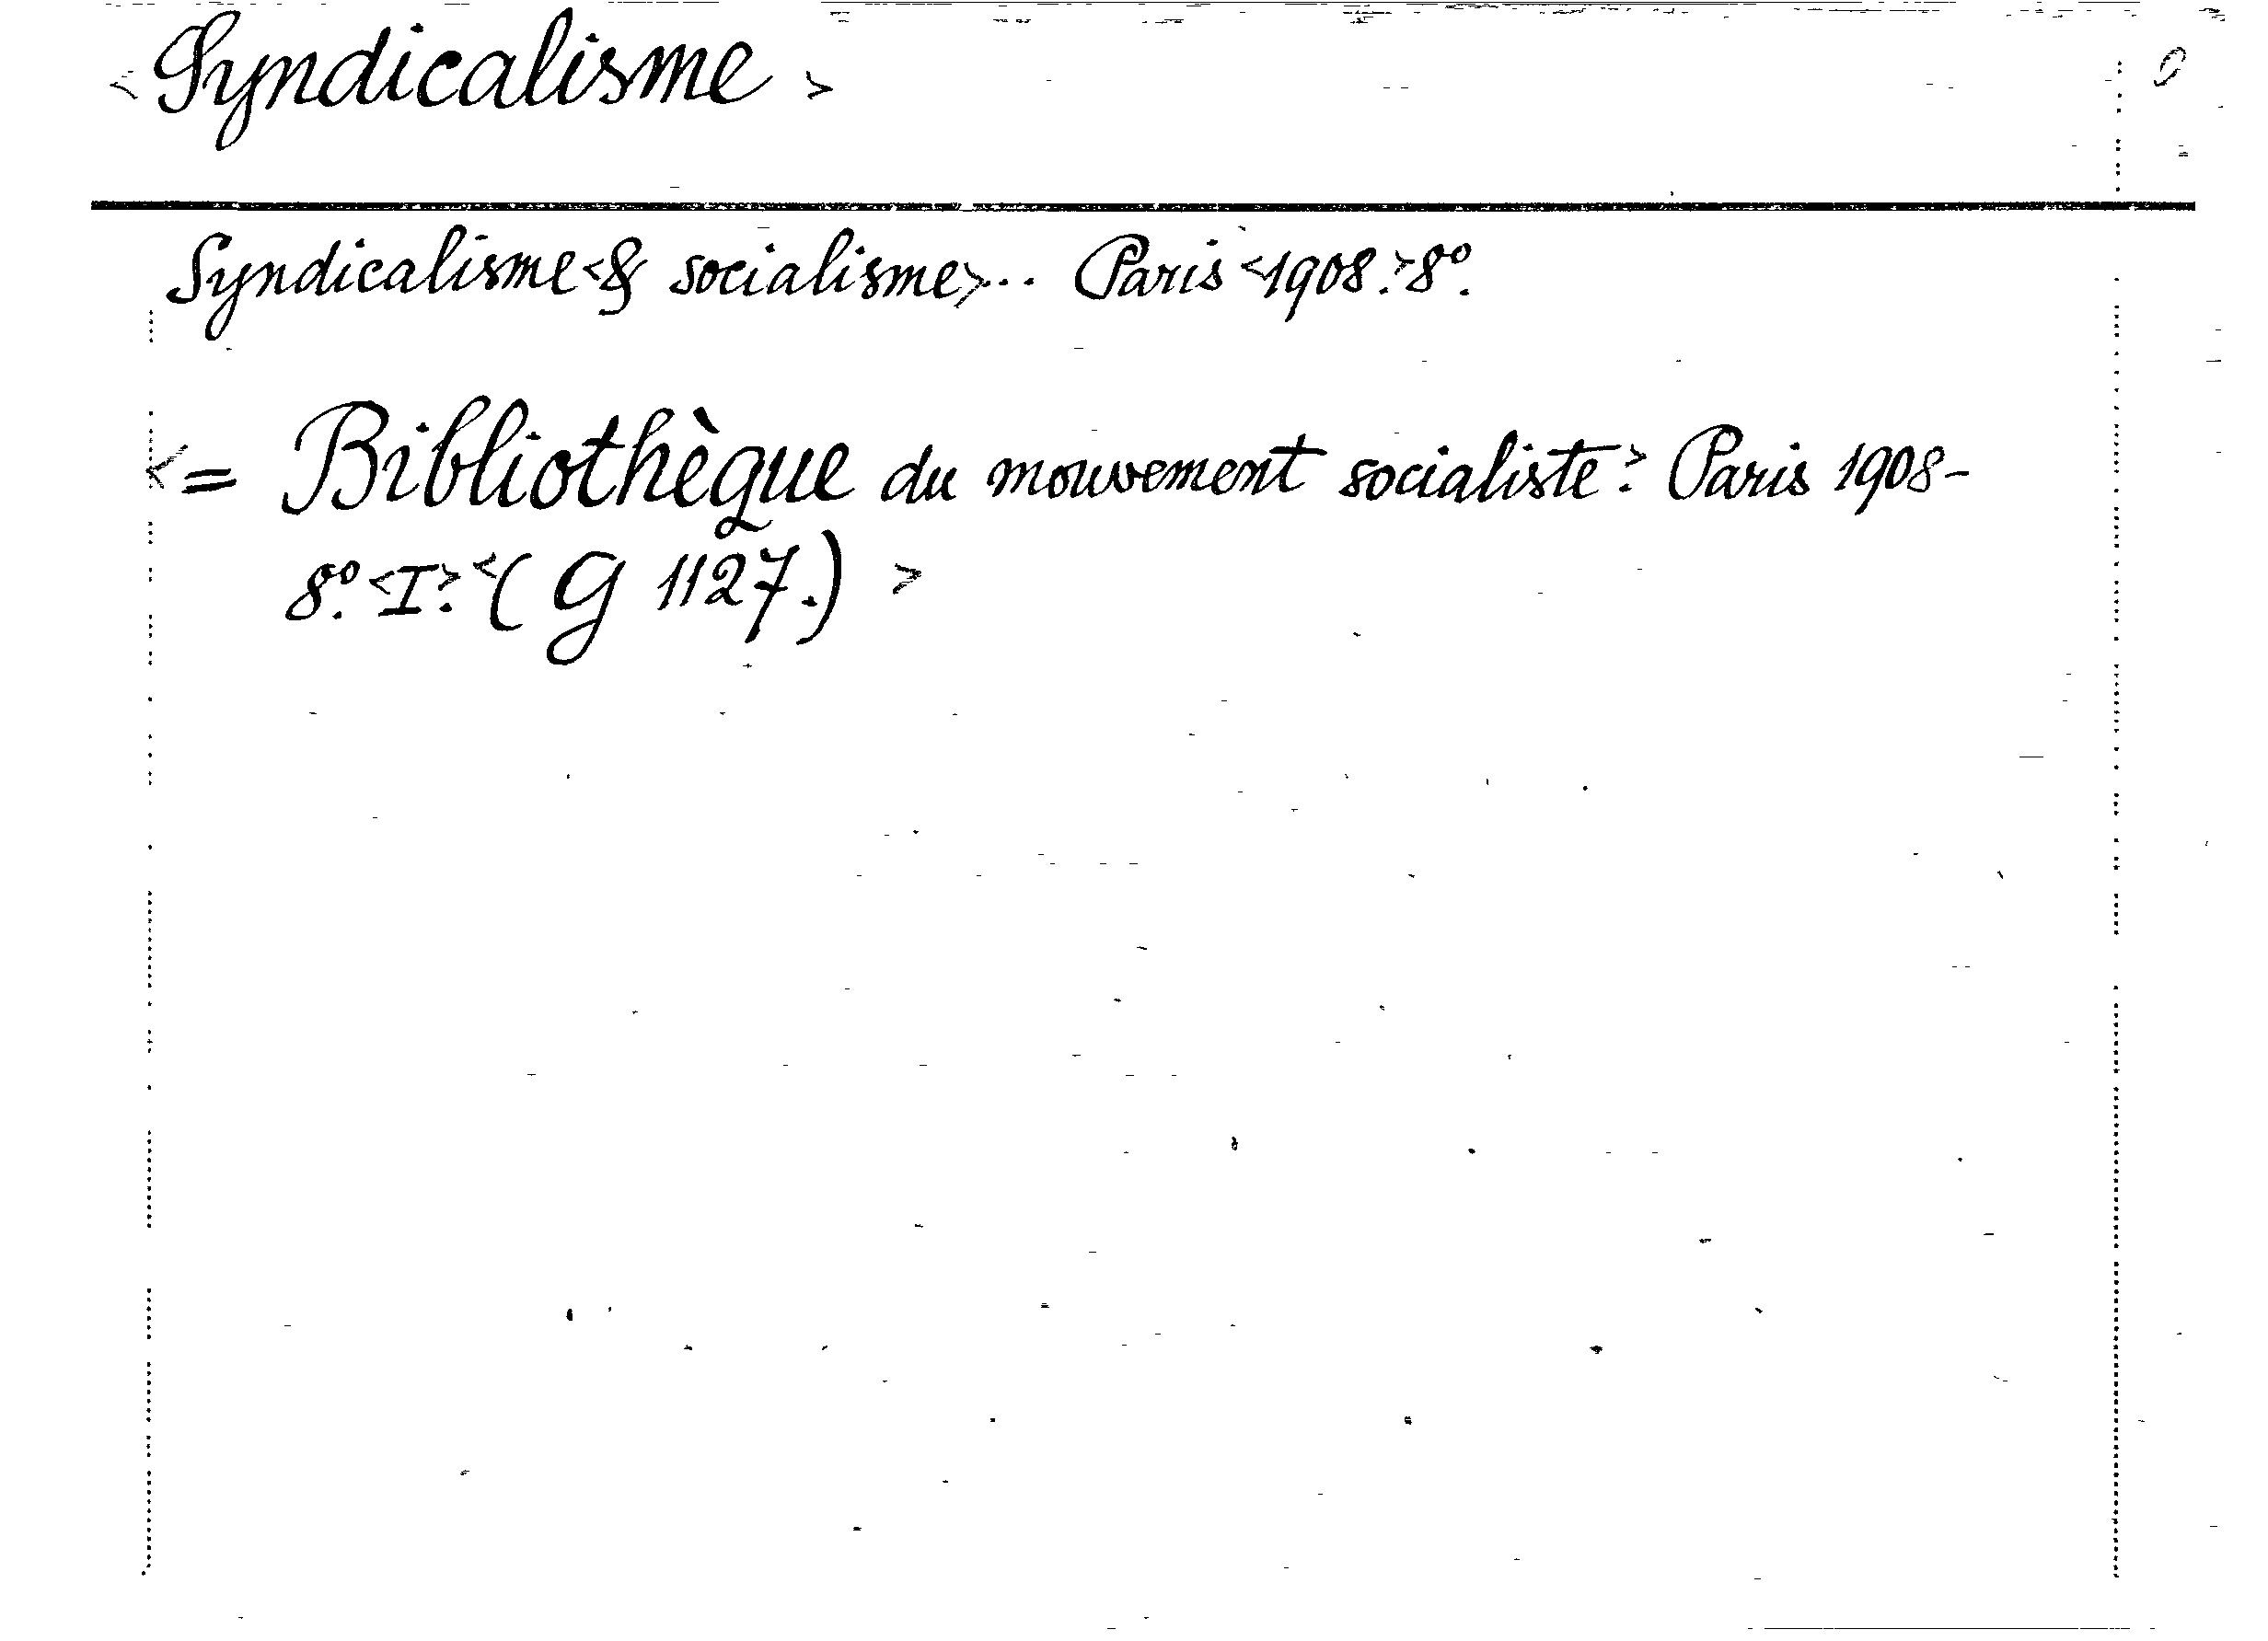 <Syndicalisme>
Syndicalisme <& socialisme> ... Paris <1908.> 8º.
<= Bibliothèque du mouvement socialiste.> Paris 1908-
8º. <I.> <(G 1127.)>